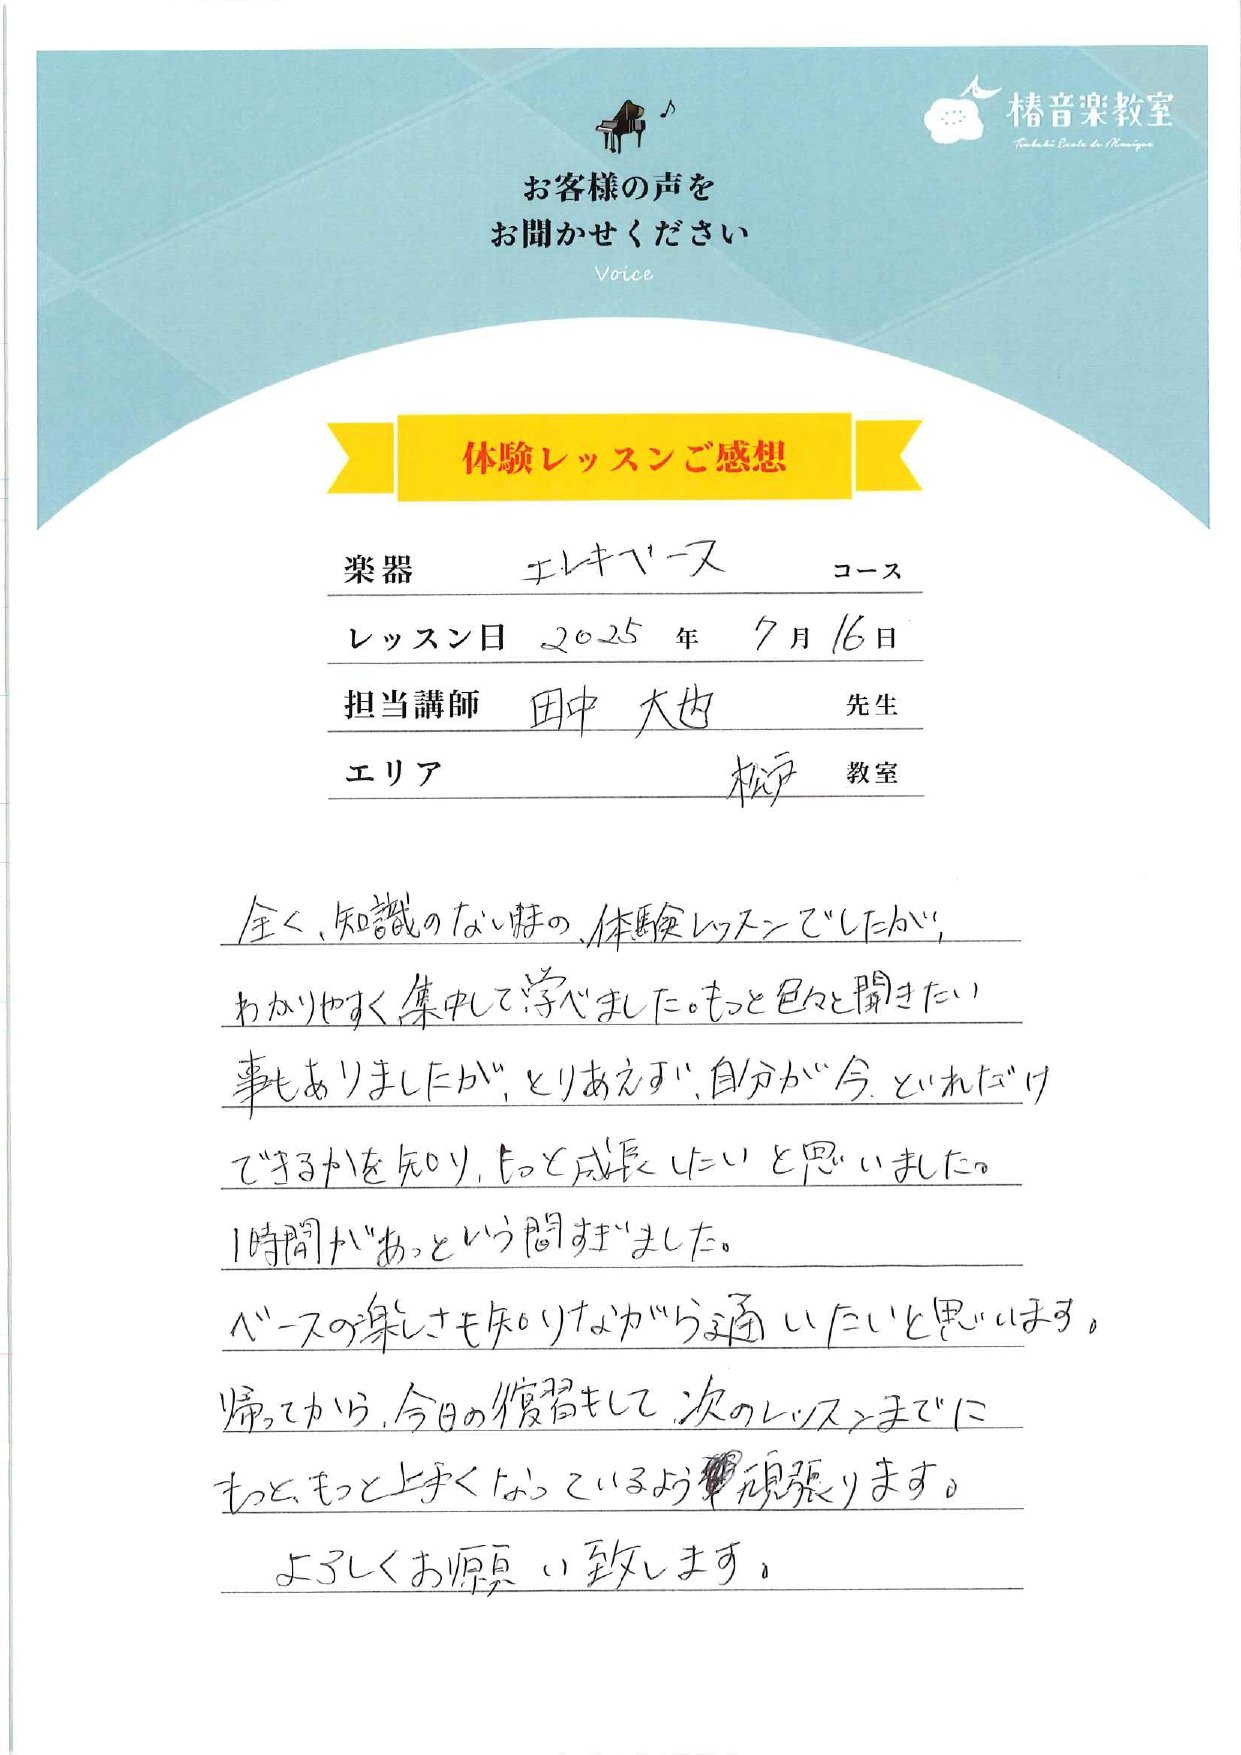 椿音楽教室
Tsubaki Ecole de Musique
お客様の声を
お聞かせください
Voice
体験レッスンご感想
楽器 エレキベース コース
レッスン日 2025 年 7 月 16 日
担当講師 田中 大也 先生
エリア 松戸 教室
全く、知識のない時の、体験レッスンでしたが、
わかりやすく集中して学べました。もっと色々と聞きたい
事もありましたが、とりあえず、自分が今、どれだけ
できるかを知り、もっと成長したいと思いました。
1時間があっという間すぎました。
ベースの楽しさも知りながら通いたいと思います。
帰ってから、今日の復習もして、次のレッスンまでに
もっと、もっと上手くなっているよう頑張ります。
よろしくお願い致します。